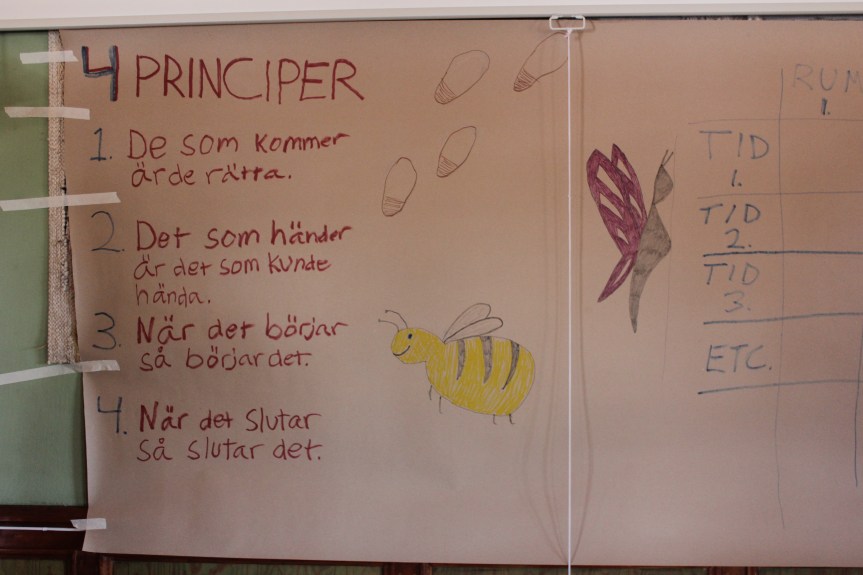 4 PRINCIPER
1. De som kommer
är de rätta.
2. Det som händer
är det som kunde
hända.
3. När det börjar
så börjar det.
4. När det slutar
så slutar det.
RUM
1.
TID
1.
TID
2.
TID
3.
ETC.